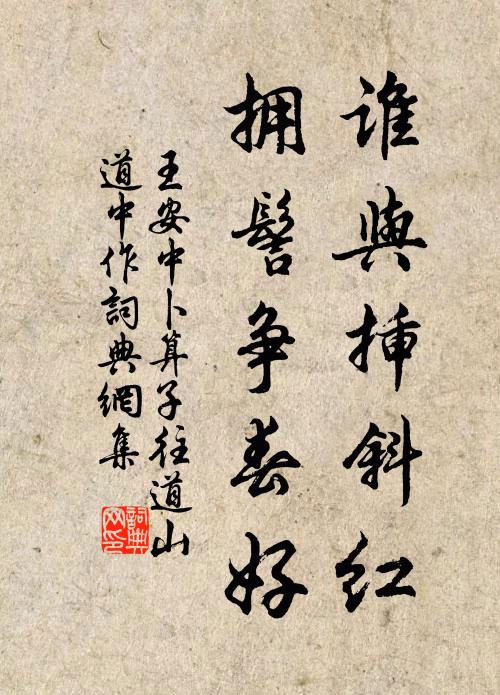 誰與插斜紅
擁髻爭春好
王安中卜算子往道山
道中作詞典網集
詞典網印